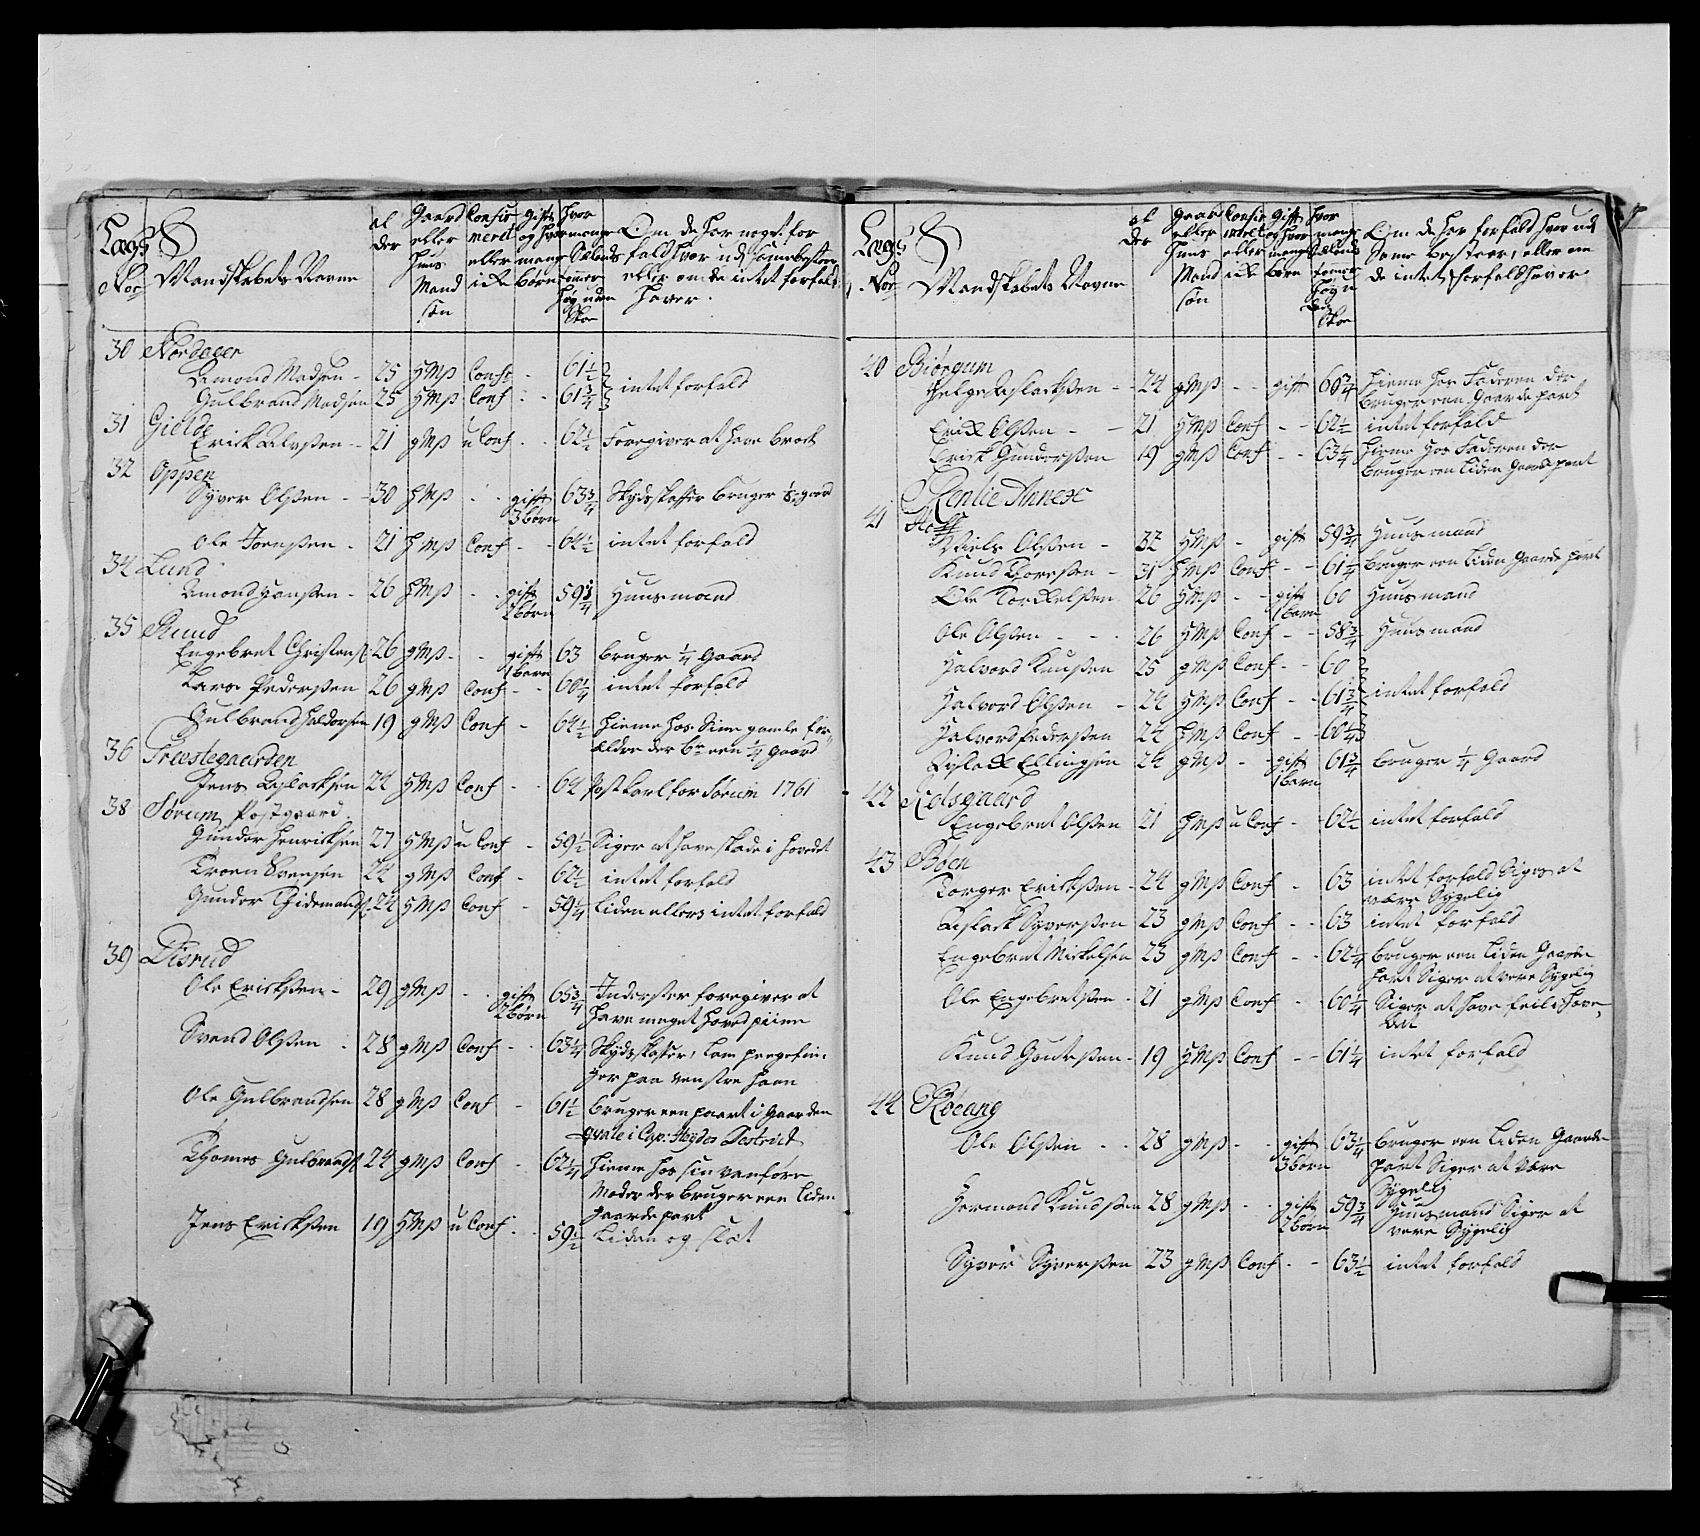 Lægs No: | Mandskabets Navne | al der | Gaard eller Huus Mand søn | Confir meret eller ick | gift og hvor mange børn | hvor mange Siælands tommer høy uden Skoe | Om de har noget forfald hvor ud Samme bestaar, eller om de intet forfald haver.
30 Nordager
Amond Madsen - 25 HMs Conf: - 61½ } intet forfald
Gulbrand Madsen 25 HMs Conf - 61¾ }
31 Gielde
Erick Alvsen - 21 gMs u Conf - - 62½ Foregiver at have brock
32 Oppen
Syver Olsen - 30 HMs - - gift 3 børn 63¾ Skydsskaffer bruger ½ gaard
Ole Joensen - 21 HMs Conf - - 64½ intet forfald
34 Lund
Amond Hansen - 26 HMs - - gift 2 børn 59¾ Huusmand
35 Rund
Engebret Christens: 26 gMs - - gift 1 barn 63 bruger ¼ Gaard
Lars Pedersen 26 gMs Conf - - 60¼ intet forfald
Gulbrand Haldorsen 19 gMs Conf - 64½ hieme hos Sine gamle for-
ældre der br een ¼ gaard
36 Præstegaarden
Jens Aslacksen 24 HMs Conf - - 64 Postkarl for Sørum 1761
38 Sørum Postgaard
Gunder Henricksen 27 HMs u Conf - 59½ Siger at have skade i hovedet
Troen Svensen 24 gMs Conf - 62½ intet forfald
Gunder Thidemands: 24 HMs Conf - 59¼ liden ellers intet forfald
39 Disrud
Ole Ericksen - 29 gMs - - gift 2 børn 65¾ Inderster foregiver at
have meget hovedpiine
Svend Olsen - 28 gMs Conf - - 63¼ Skydsskaffer, lam pegefin-
ger paa venstre haan
Ole Gulbrandsen 28 gMs Conf - 61½ bruger een paart i Gaarden
Qvale i Cap: Heydes District
Thomes Gulbrands: 24 gMs Conf - 62¼ hieme hos sin vanføre
Moder der bruger een liden
gaardepart
Jens Ericksen 19 HMs u Conf - - 59½ Liden og slet
Lægs No: | Mandskabets Navne | al der | gaar eller Huus Mand søn | Confir meret eller ick | Gift og hvor mange børn | hvor mange Siælands tomer høy u den Skoe | Om de har forfald hvor ud Same bestaar, eller om de intet forfald haver
40 Biørgum
Helge Aslacksen - - 24 gMs - - gift 60¾ hieme hos Faderen der
bruger een Gaardepart
Erick Olsen - - 21 HMs Conf - - 62½ intet forfald
Erick Gundersen 19 gMs Conf - - 63¼ hieme hos Faderen der
bruger een liden Gaardepart
Renlie Annex
41 Hoff
Niels Olsen - 32 HMs - gift 59¾ Huusmand
Knud Thoresen - 31 HMs Conf - - 61¼ bruger een liden Gaarde part
Ole Torckelsen 26 HMs - - gift 1 barn 60 Huusmand
Ole Olsen - - - 26 HMs Conf - - 58¾ Huusmand
Halvord Knusen 25 gMs Conf - - 60 }
Halvord Olsen - 24 HMs Conf - - 61¾ } intet forfald
Halvord Pedersen 24 HMs Conf - - 60¼ }
Aslack Ellingsen 24 gMs - - gift 1 barn 61¾ bruger ¼ Gaard
42 Kolsgaard
Engebret Olsen 21 HMs u Conf - 62½ intet forfald
43 Böen
Torger Ericksen - 24 gMs Conf - 63 intet forfald Siges at
være Sygelig
Aslack Syversen 23 gMs Conf - - 63 intet forfald
Engebret Mickelsen 23 gMs Conf - - 62¼ bruger een liden Gaarde
part Siger at være Sygelig
Ole Engebretsen - 21 gMs Conf - - 60¼ Siger at have feil i hove-
det
Knud Goutesen - 19 HMs Conf - - 61¼ intet forfald
44 Röeang
Ole Olsen - - 28 gMs - - gift 3 børn 63¼ bruger een liden Gaarde-
part Siger at være
Sygelig
Hermand Knudsen 28 gMs - - gift 2 børn 59¾ Huusmand Siger at
være Sygelig
Syver Syversen 23 gMs Conf - - 63½ intet forfald